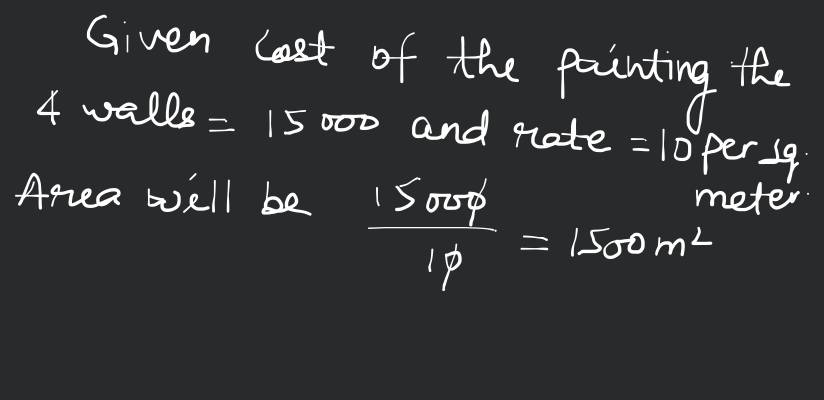 Given cost of the painting the
4 walls = 15000 and rate = 10 per sq.
meter.
Area will be 15000/10 = 1500 m²